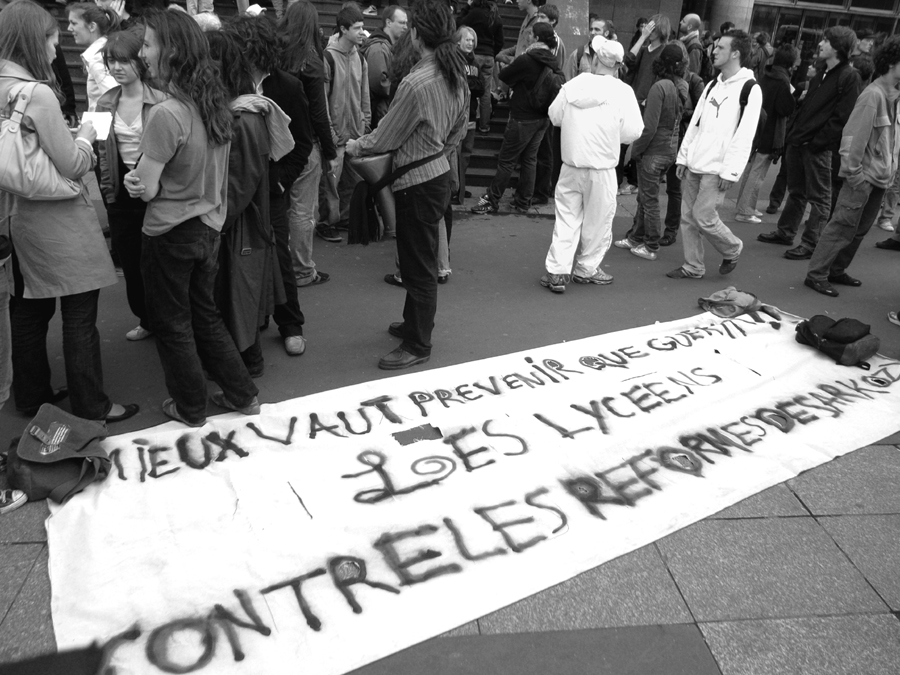 MIEUX VAUT PREVENIR QUE GUERIR
LES LYCÉENS
CONTRE LES REFORMES DE SARKOZI